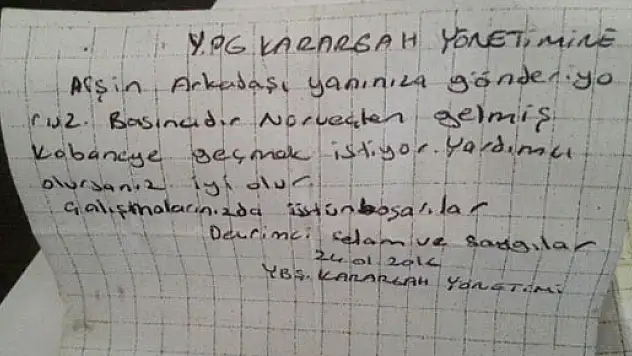 Y.PG KARARGAH YÖNETİMİNE
Afşin Arkadaşı yanınıza gönderiyo
ruz. Basıncıdır Norveçten gelmiş
Kobaneye geçmek istiyor. Yardımcı
olursanız iyi olur.
Çalışmalarınızda üstün başarılar
Devrimci selam ve saygılar
24.01.2016
YBŞ. KARARGAH YÖNETİMİ